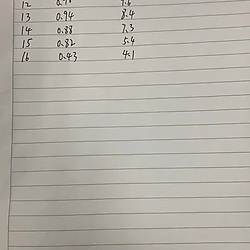 12
13 0.94 8.4
14 0.88 7.3
15 0.82 5.4
16 0.43 4.1